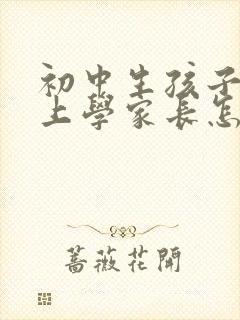 初中生孩子
上學家長怎
蔷薇花開